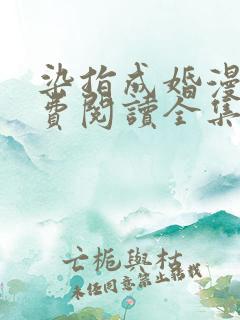 染指成婚漫
費閱讀全集
亡梔與枯
未经同意禁止转载